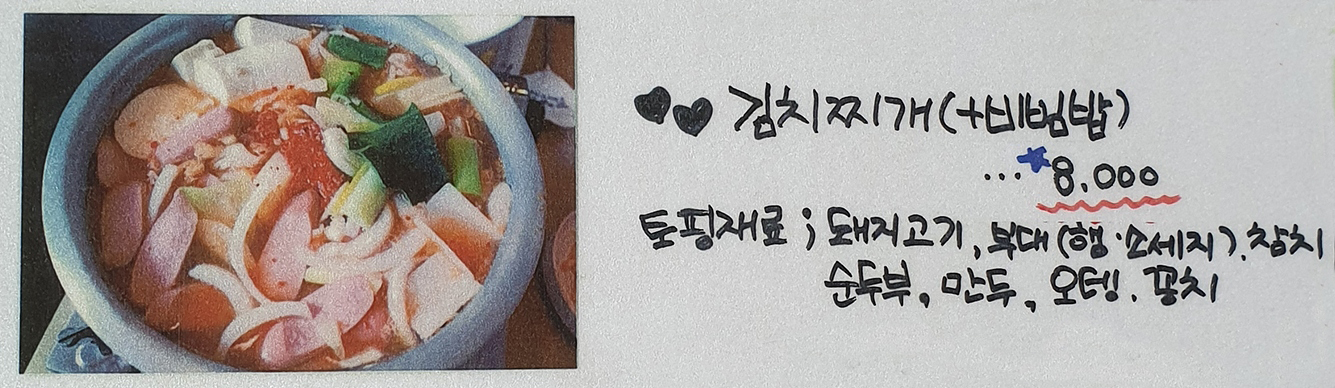 ♥♥ 김치찌개(+비빔밥)
... ★8.000
토핑재료 ; 돼지고기, 부대(햄·소세지), 참치
순두부, 만두, 오뎅. 꽁치